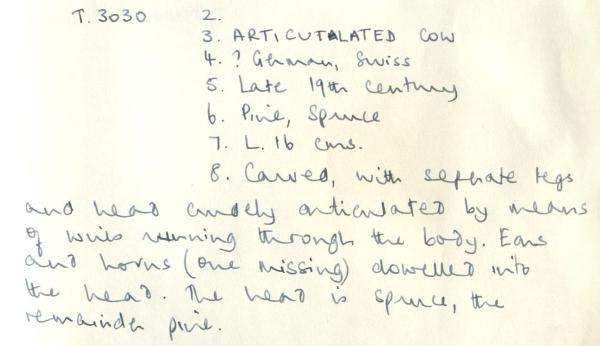 T. 3030 2.
3. ARTICUTALATED COW
4. ? German, Swiss
5. Late 19th century
6. Pine, Spruce
7. L. 16 cms.
8. Carved, with seprate legs
and head crudely articulated by means
of wires running through the body. Ears
and horns (one missing) dowelled into
the head. The head is spruce, the
remainder pine.